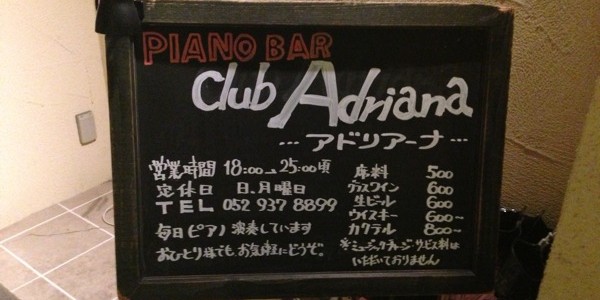 PIANO BAR
Club Adriana
...アドリアーナ...
営業時間 18:00→25:00頃
定休日 日、月曜日
TEL 052 937 8899
毎日ピアノ演奏しています
おひとり様でも、お気軽にどうぞ。
席料 500
グラスワイン 600
生ビール 600
ウイスキー 600~
カクテル 800~
※ミュージックチャージ・サービス料は
いただいておりません